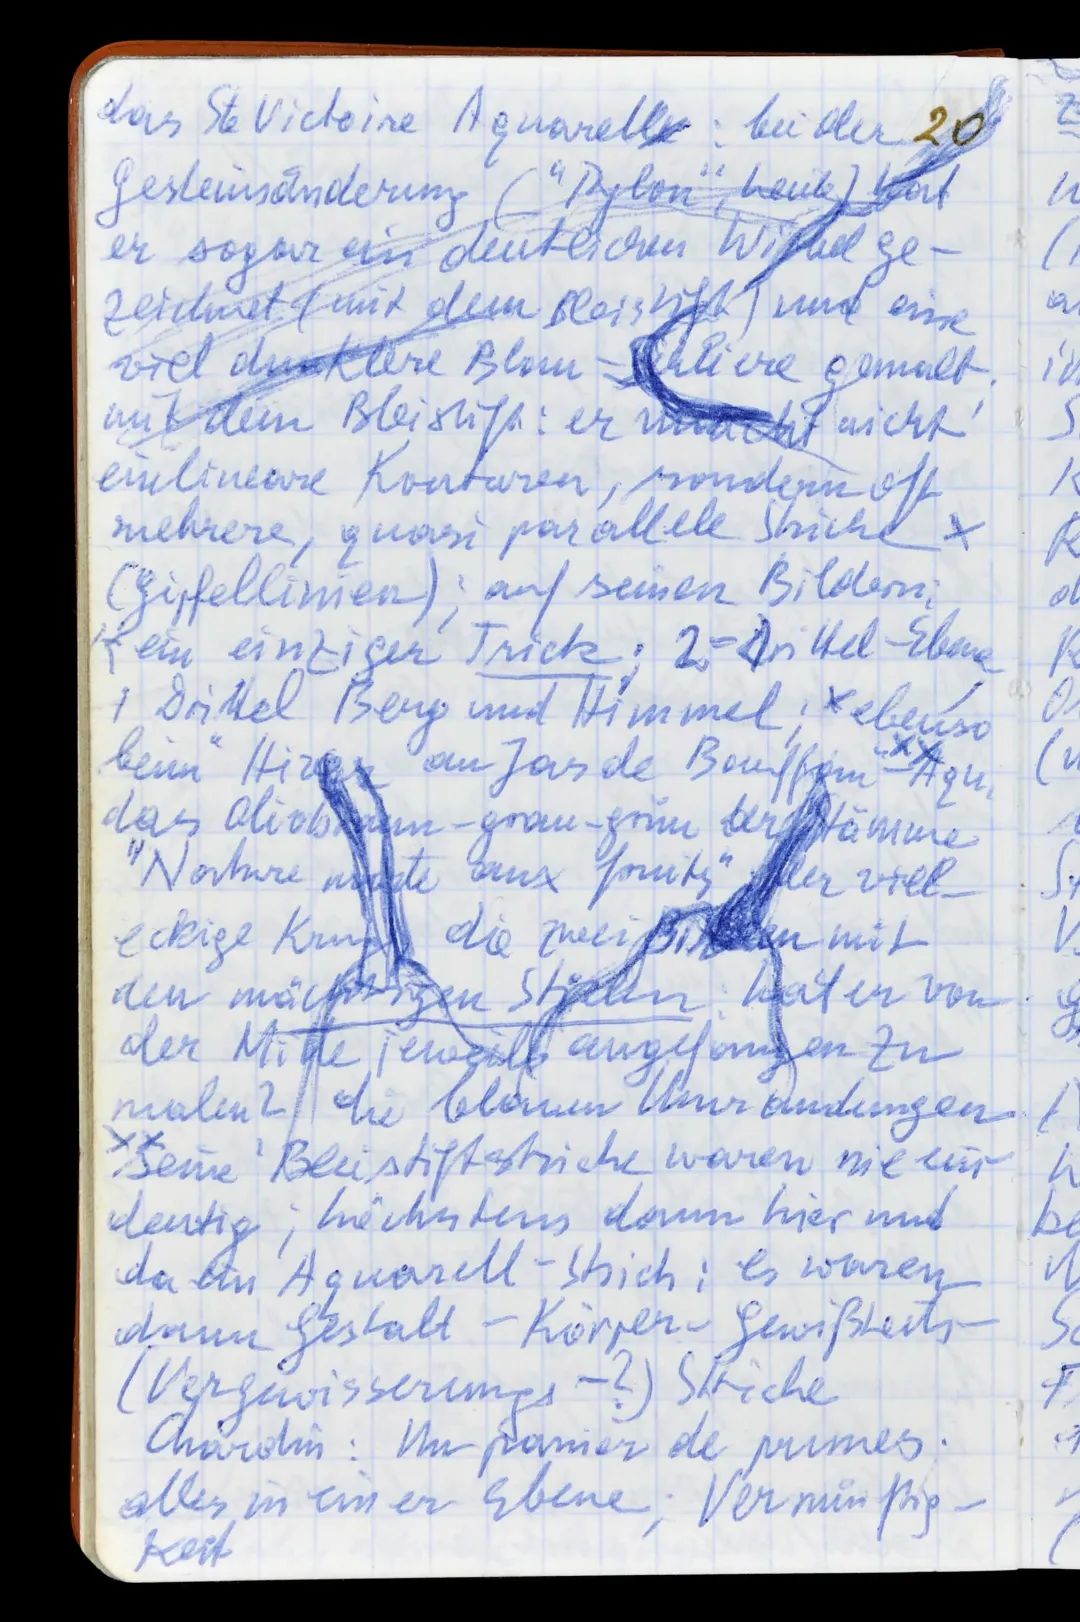 das Ste Victoire Aquarell : bei der 20
Gesteinsänderung ("Pylon", heute) hat
er sogar ein deutlichen Winkel ge-
zeichnet (mit dem Bleistift) und eine
viel dunklere Blau- gemalt.
mit dem Bleistift: er macht nicht
einlineare Konturen, sondern oft
mehrere, quasi parallele Striche x
(Gipfellinien); auf seinen Bildern:
ein einziger Trick; 2-Drittel-Ebene
1 Drittel Berg und Himmel; x ebenso
beim " an Jas de Bouffan"-xx Aqu.
das -grau-grün der Stämme
"Nature morte aux fruits", der viel-
eckige Krug, die zwei Birnen mit
den mächtigen Stielen: hat er von
der Mitte jeweils angefangen zu
malen? die blauen Umrandungen
xx Seine Bleistiftstriche waren nie ein-
deutig; höchstens dann hier und
da ein Aquarell-Strich; es waren
dann Gestalt-Körper-Gewißheits-
(Vergewisserungs-?) Striche
Chardin: Un panier de prunes.
alles in einer Ebene; Vernünftig-
keit